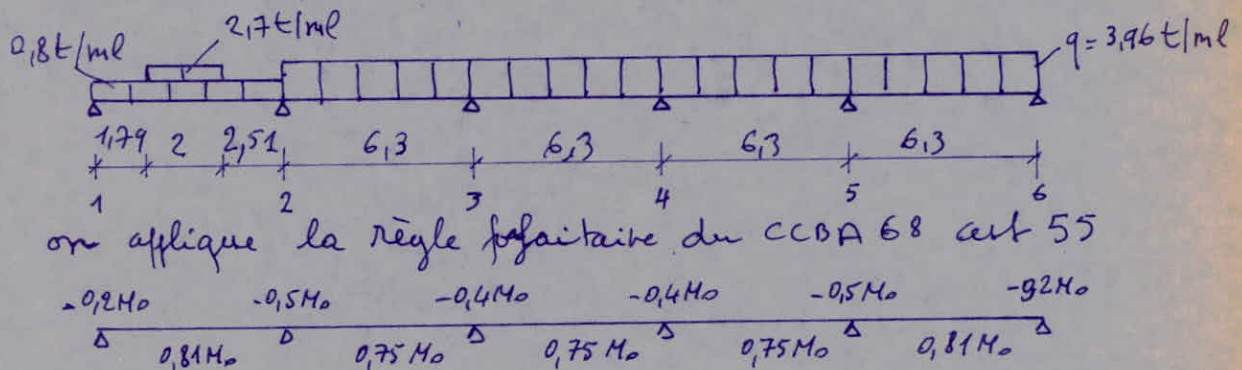 0,8t/ml 2,7t/ml q=3,96t/ml
1,79 2 2,51 6,3 6,3 6,3 6,3
1 2 3 4 5 6
on applique la règle forfaitaire du CCBA 68 art 55
-0,2M₀ -0,5M₀ -0,4M₀ -0,4M₀ -0,5M₀ -0,2M₀
0,81M₀ 0,75M₀ 0,75M₀ 0,75M₀ 0,81M₀